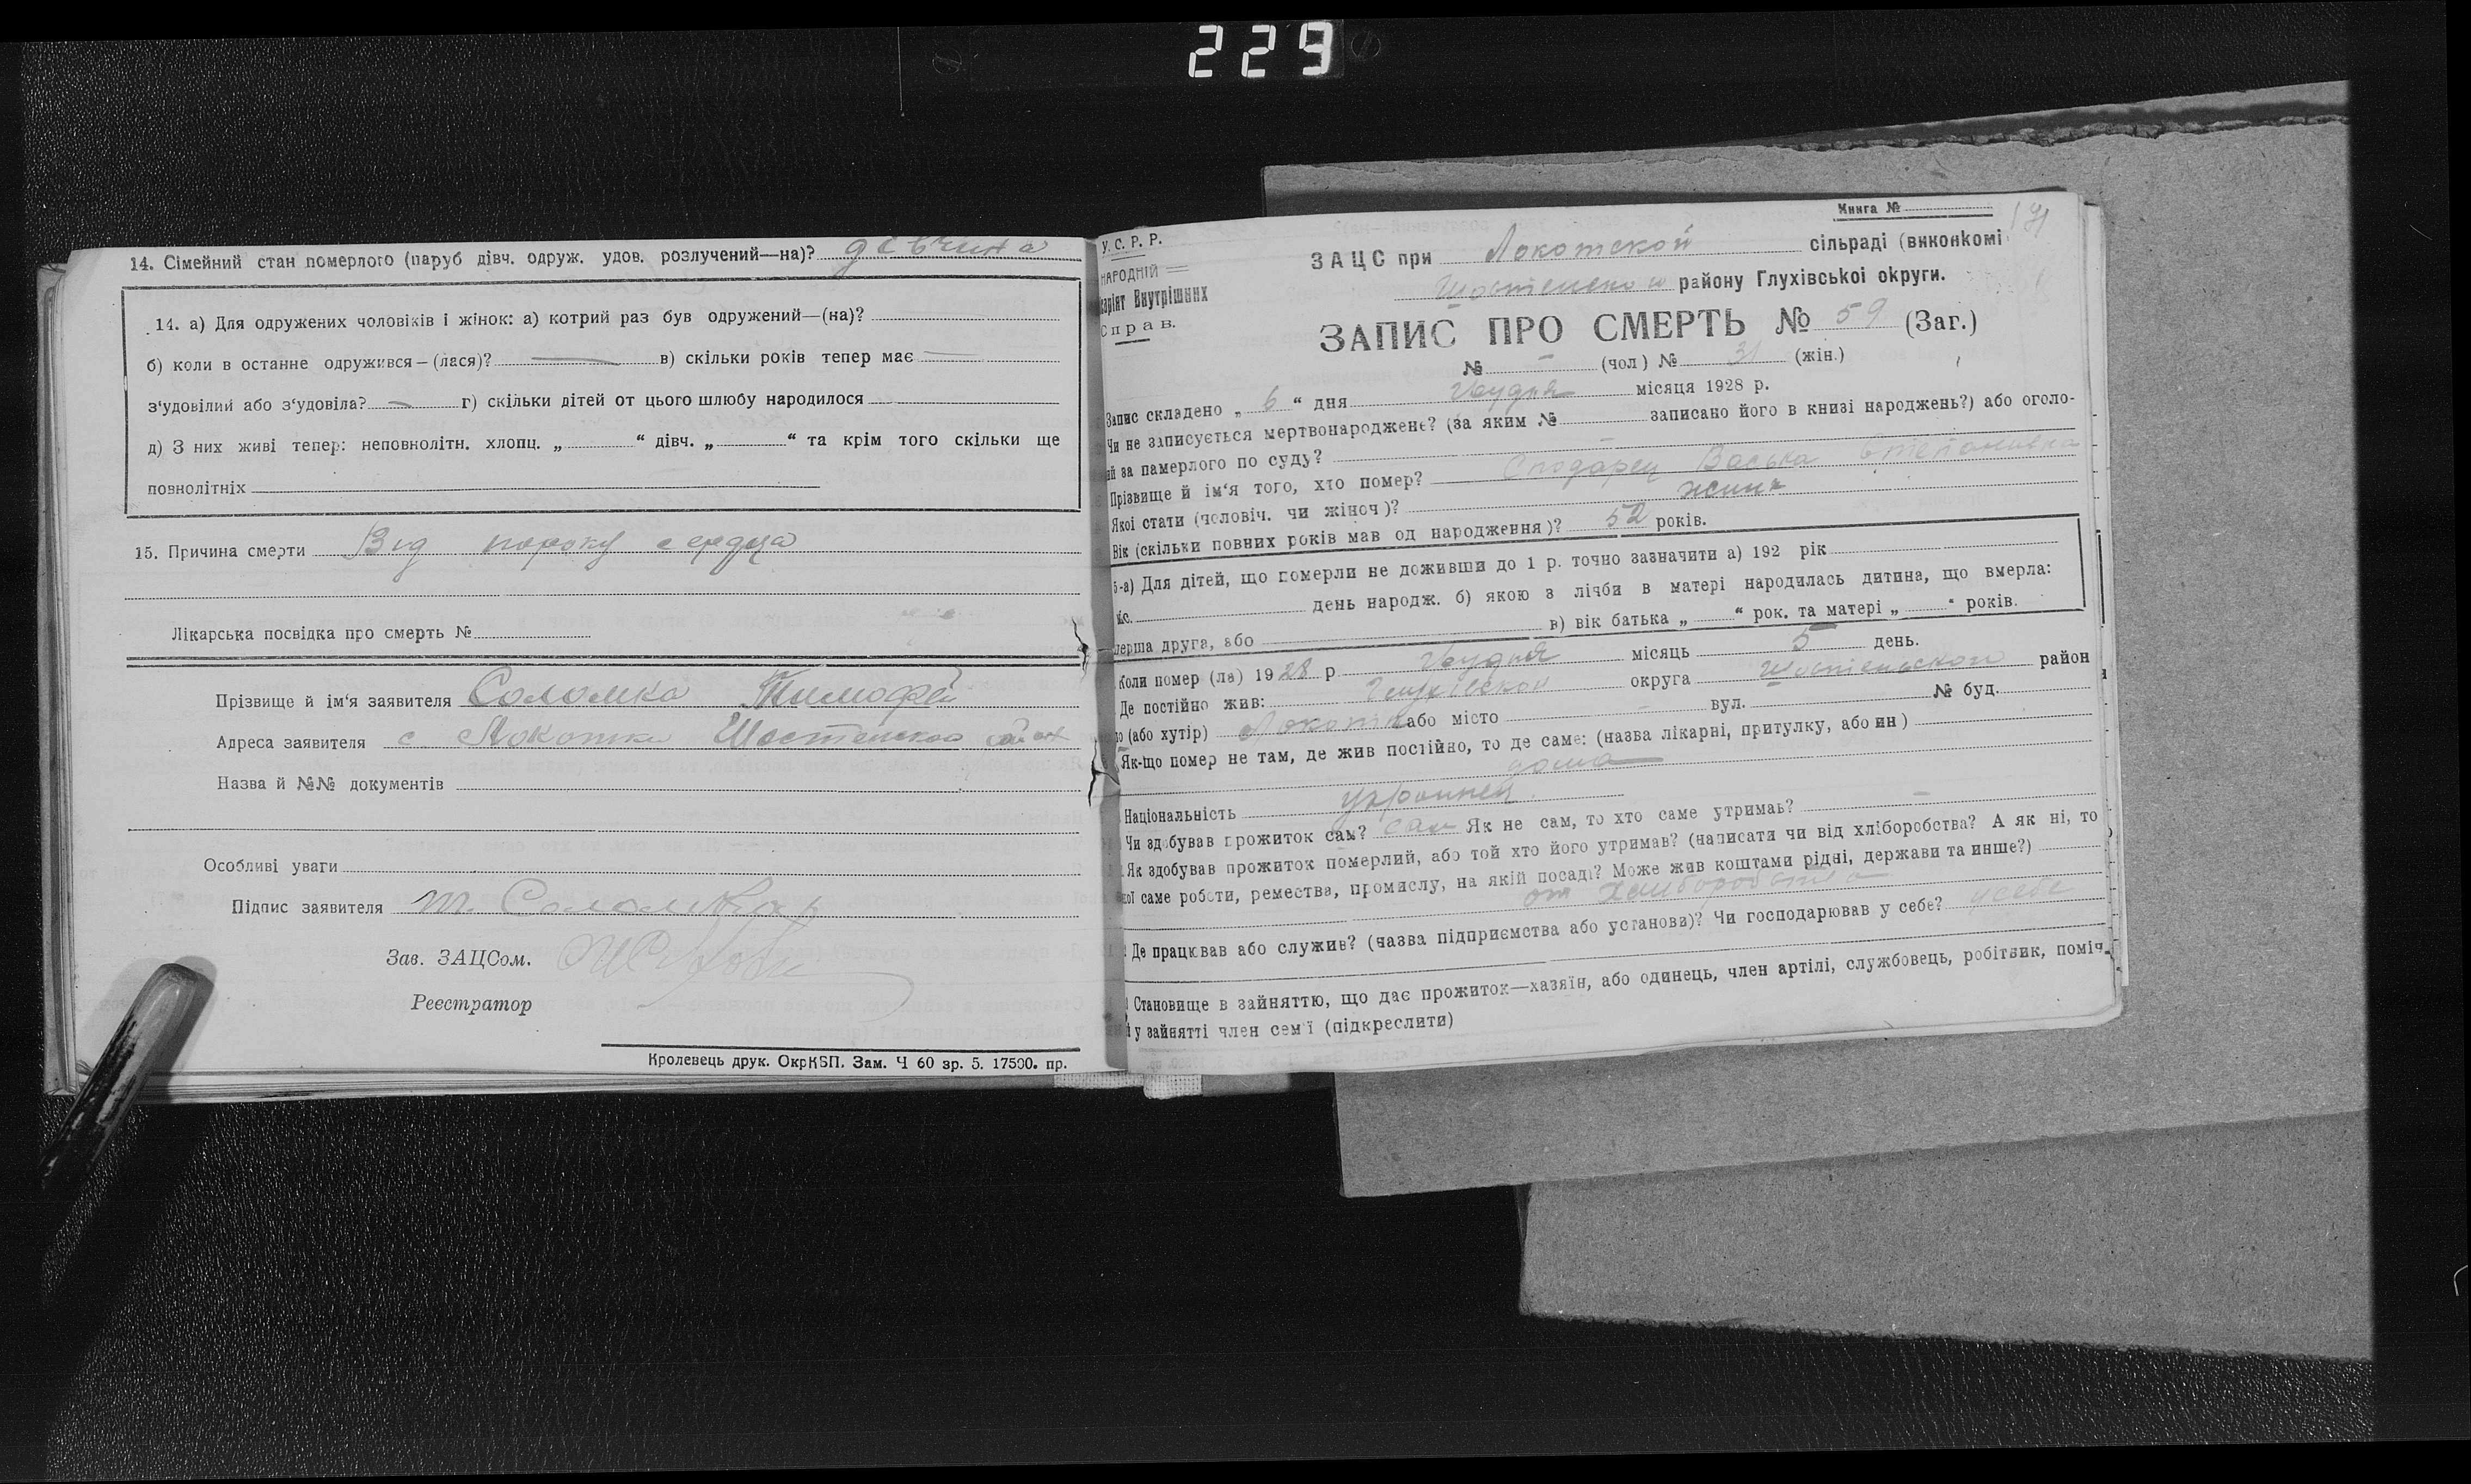 229
14. Сімейний стан померлого (паруб дівч. одруж. удов. розлучений—на)? девчина
14. а) Для одружених чоловіків і жінок: а) котрий раз був одружений—(на)?
б) коли в останне одружився—(лася)? в) скільки років тепер має
з'удовілий або з'удовіла? г) скільки дітей от цього шлюбу народилося
д) З них живі тепер: неповнолітн. хлопц. „ “ дівч. „ “ та крім того скільки ще
повнолітніх
15. Причина смерти Від пороку сердца
Лікарська посвідка про смерть №
Прізвище й ім'я заявителя Соломка Тимофей
Адреса заявителя с Локотки Шостенского
Назва й №№ документів
Особливі уваги
Підпис заявителя т. Соломка
Зав. ЗАЦСом.
Реєстратор
Кролевець друк. ОкрКВП. Зам. Ч 60 зр. 5. 17500. пр.
Книга №
У. С. Р. Р.
НАРОДНІЙ
каріят Внутрішних
Справ.
ЗАЦС при Локотской сільраді (виконкомі
Шостенского району Глухівської округи.
ЗАПИС ПРО СМЕРТЬ № 59 (Заг.)
№ – (чол) № 31 (жін.)
Запис складено „ 6 “ дня Грудня місяця 1928 р.
Чи не записується мертвонароджене? (за яким № записано його в книзі народжень?) або оголо-
ий за памерлого по суду?
Прізвище й ім'я того, хто помер? Сподарец Васька Степановна
Якої стати (чоловіч. чи жіноч)? жинк
Вік (скільки повних років мав од народження)? 52 років.
5-а) Для дітей, що померли не доживши до 1 р. точно зазначити а) 192 рік
міс. день народж. б) якою з лічби в матері народилась дитина, що вмерла:
перша друга, або в) вік батька „ “ рок. та матері „ “ років.
Коли помер (ла) 1928 р Грудня місяць 5 день.
Де постійно жив: Глухівской округа Шостенськой район
(або хутір) Локотки або місто вул. № буд.
Як-що помер не там, де жив постійно, то де саме: (назва лікарні, притулку, або ин)
дома
Національність украинец
Чи здобував прожиток сам? сам Як не сам, то хто саме утримав? –
Як здобував прожиток померлий, або той хто його утримав? (написати чи від хліборобства? А як ні, то
ної саме роботи, ремества, промислу, на якій посаді? Може жив коштами рідні, держави та инше?)
от хлиборобства
Де працював або служив? (назва підприємства або установи)? Чи господарював у себе? у себе
Становище в зайняттю, що дає прожиток—хазяїн, або одинець, член артілі, службовець, робітник, поміч.
й у зайнятті член сем'ї (підкреслити)